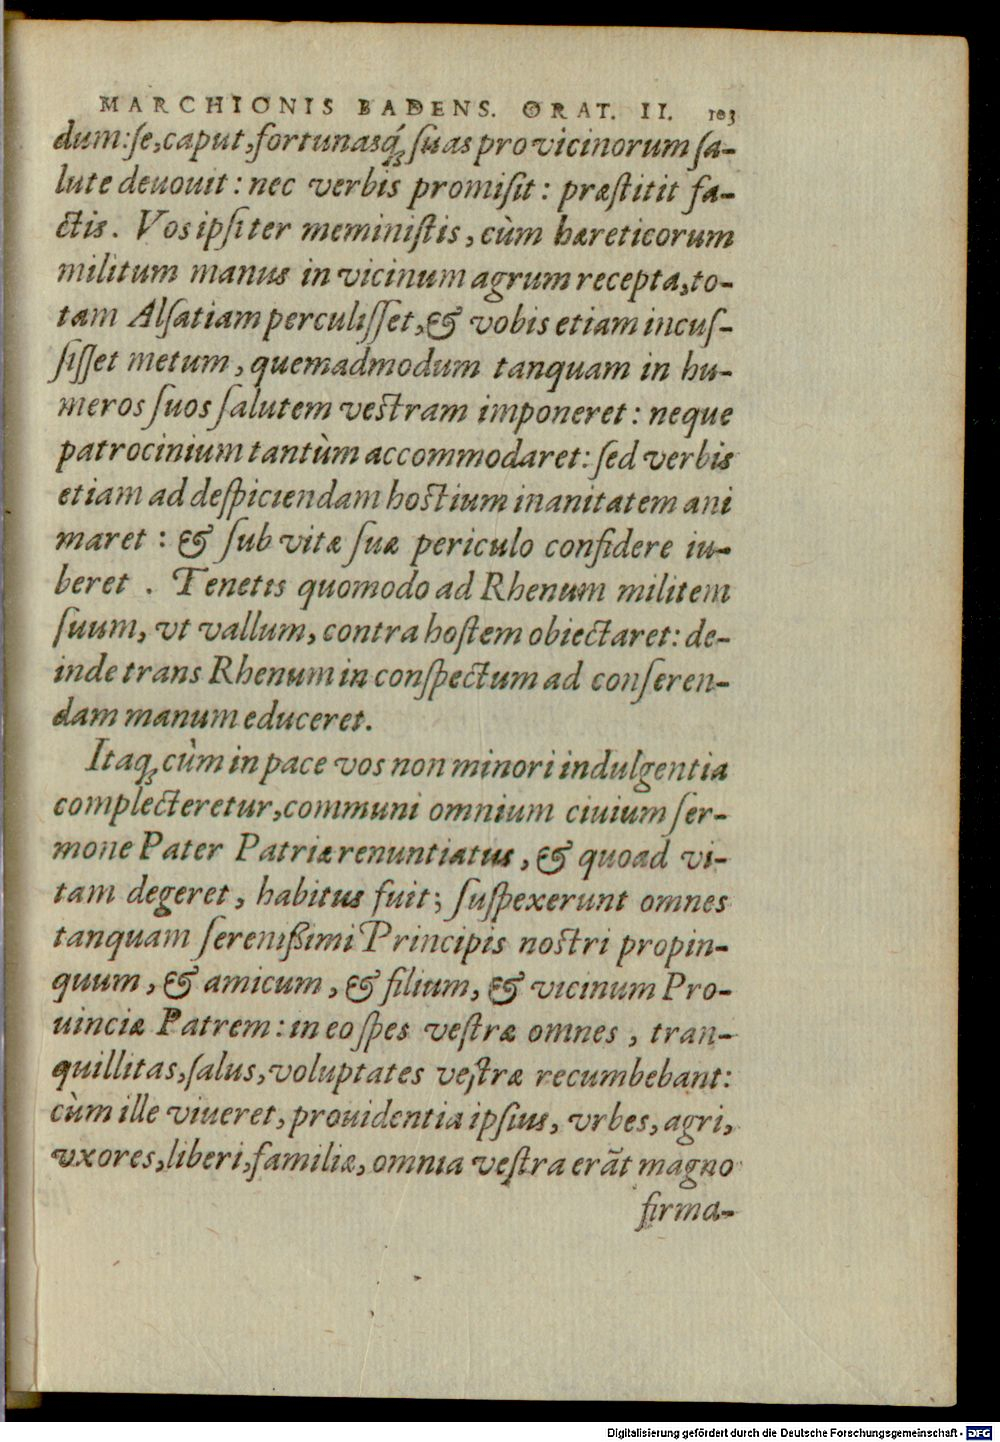 MARCHIONIS BADENS. ORAT. II. 103
dum: se, caput, fortunasq́ꝫ suas pro vicinorum sa-
lute deuouit: nec verbis promisit: præstitit fa-
ctis. Vos ipsi ter meministis, cùm hæreticorum
militum manus in vicinum agrum recepta, to-
tam Alsatiam perculisset, & vobis etiam incus-
sisset metum, quemadmodum tanquam in hu-
meros suos salutem vestram imponeret: neque
patrocinium tantùm accommodaret: sed verbis
etiam ad despiciendam hostium inanitatem ani
maret: & sub vitæ suæ periculo confidere iu-
beret. Tenetis quomodo ad Rhenum militem
suum, vt vallum, contra hostem obiectaret: de-
inde trans Rhenum in conspectum ad conseren-
dam manum educeret.
Itaqꝫ cùm in pace vos non minori indulgentia
complecteretur, communi omnium ciuium ser-
mone Pater Patriæ renuntiatus, & quoad vi-
tam degeret, habitus fuit; suspexerunt omnes
tanquam serenißimi Principis nostri propin-
quum, & amicum, & filium, & vicinum Pro-
uinciæ Patrem: in eo spes vestræ omnes, tran-
quillitas, salus, voluptates vestræ recumbebant:
cùm ille viueret, prouidentia ipsius, vrbes, agri,
vxores, liberi, familiæ, omnia vestra erãt magno
firma-
Digitalisierung gefördert durch die Deutsche Forschungsgemeinschaft - DFG